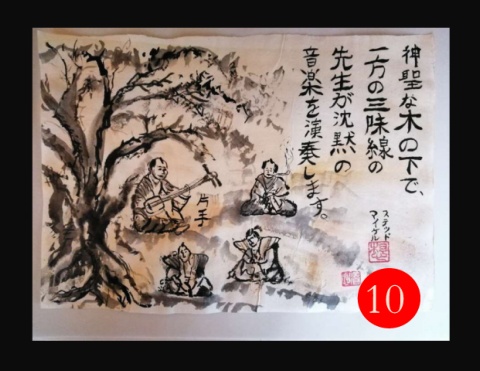 神聖な木の下で、
一方の三味線の
先生が沈黙の
音楽を演奏します。
片手
ステッド
マイケル
10